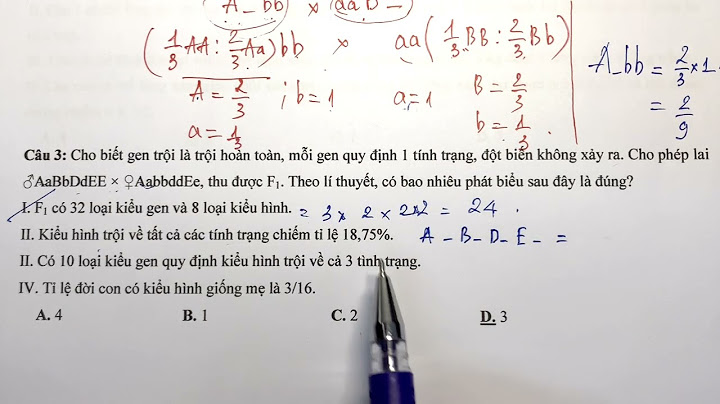 A_bb) × (aaD_)
(1/3 AA : 2/3 Aa) bb × aa (1/3 BB : 2/3 Bb)
A = 2/3 ; b = 1 a = 1 B = 2/3
a = 1/3 b = 1/3 .
A_bb = 2/3 × 1
= 2/9
Câu 3: Cho biết gen trội là trội hoàn toàn, mỗi gen quy định 1 tính trạng, đột biến không xảy ra. Cho phép lai
♂AaBbDdEE × ♀AabbddEe, thu được F₁. Theo lí thuyết, có bao nhiêu phát biểu sau đây là đúng?
I. F₁ có 32 loại kiểu gen và 8 loại kiểu hình. = 3 × 2 × 2×2 = 24 .
II. Kiểu hình trội về tất cả các tính trạng chiếm tỉ lệ 18,75%. A - B - D - E - =
II. Có 10 loại kiểu gen quy định kiểu hình trội về cả 3 tính trạng.
IV. Tỉ lệ đời con có kiểu hình giống mẹ là 3/16.
A. 4 B. 1 C. 2 D. 3